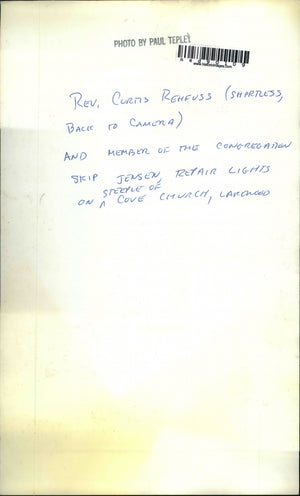 PHOTO BY PAUL TEPLEY
REV. CURTIS REHFUSS (SHIRTLESS,
BACK TO CAMERA)
AND MEMBER OF THE CONGREGATION
SKIP JENSEN, REPAIR LIGHTS
STEEPLE OF
ON A COVE CHURCH, LAKEWOOD